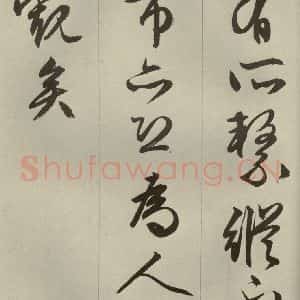 有所繫縱不
亦為人
觀矣
Shufawang.CN